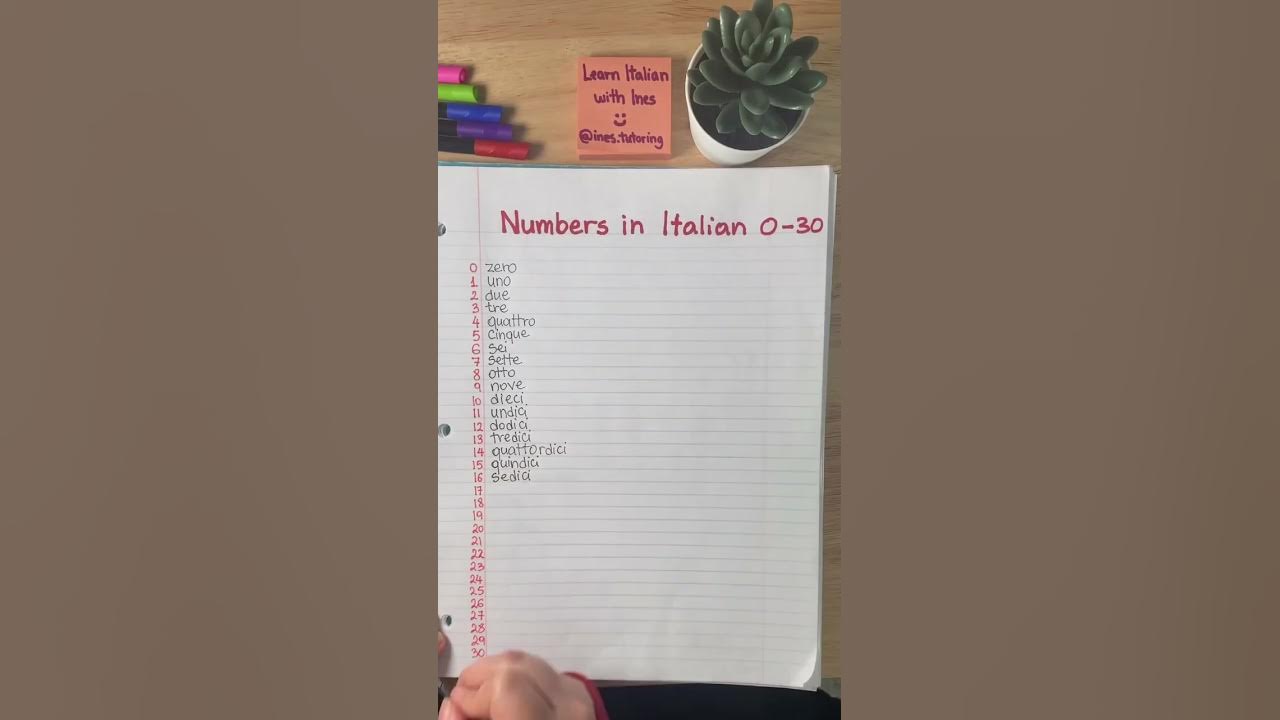 Learn Italian
with Ines
@ines.tutoring
Numbers in Italian 0-30
0 zero
1 uno
2 due
3 tre
4 quattro
5 cinque
6 sei
7 sette
8 otto
9 nove
10 dieci
11 undici
12 dodici
13 tredici
14 quattordici
15 quindici
16 sedici
17
18
19
20
21
22
23
24
25
26
27
28
29
30